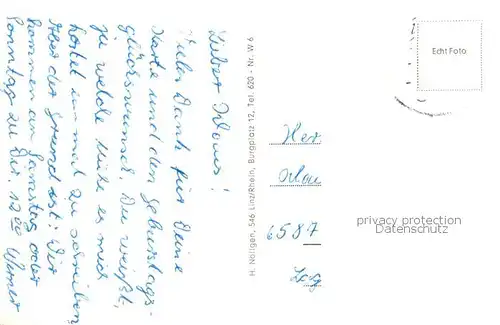 Lieber Klaus!
Vielen Dank für Deine
Karte und den Geburtstags-
glückwunsch. Du weißt,
welche Mühe es mich
kostet mal zu schreiben
Aber der Grund ist: Wir
kommen am Samstag oder
Sonntag zu Dir. 12⁰⁰ Werner
H. Nöltgen, 546 Linz/Rhein, Burgplatz 12, Tel. 620 · Nr. W 6
Echt Foto
Her
Klau
6587
privacy protection
Datenschutz